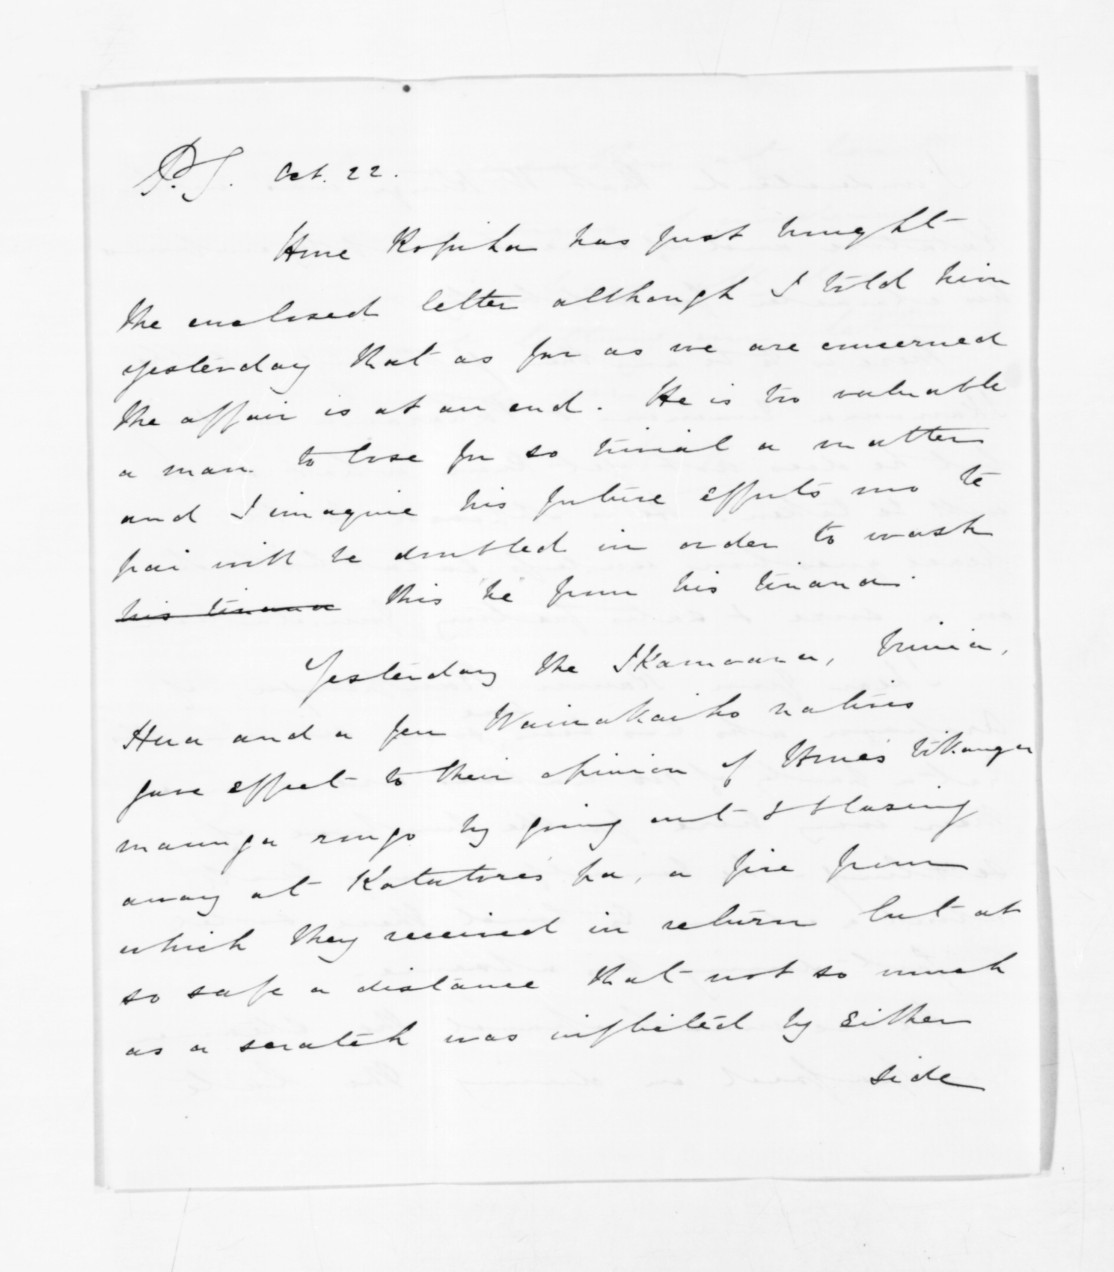 P.S. Oct. 22.
Hone Ropiha has just brought
the enclosed letter although I told him
yesterday that as far as we are concerned
the affair is at an end. He is too valuable
a man to lose for so trivial a matter
and I imagine his future efforts mo te
pai will be doubled in order to wash
his tinana this he from his tinana.
Yesterday the Ikamoana,
Hua and a few Waiwakaiho natives
gave effect to their opinion of Hone's tikanga
maunga rongo by going out & blazing
away at Katatore's pa, a fire from
which they received in return but at
so safe a distance that not so much
as a scratch was inflicted by either
side